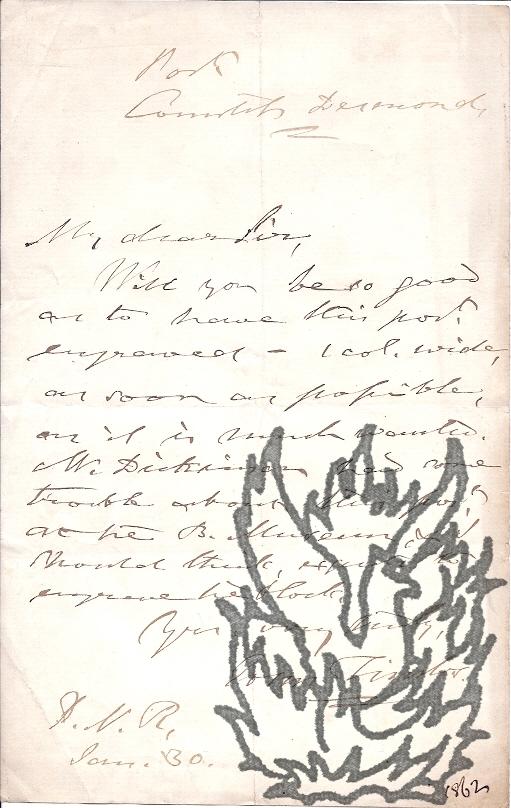 Port.
Countess Desmond,
My dear Sir,
Will you be so good
as to have this port.
engraved – 1 col. wide,
as soon as possible,
as it is much wanted.
Mr. Dickinson had some
trouble about this port.
at the B. Museum,
should think,
engrave the block.
Yrs very truly,
John Timbs.
I. L. N.
Jan. 30.
1862